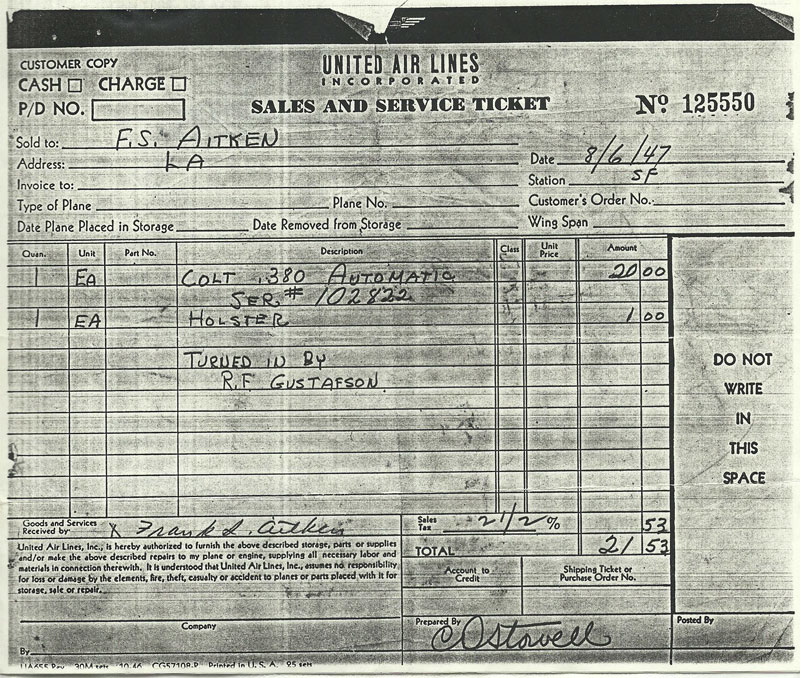 CUSTOMER COPY
CASH CHARGE
P/D NO.
UNITED AIR LINES
INCORPORATED
SALES AND SERVICE TICKET
Nº 125550
Sold to: F.S. AITKEN
Address: LA
Invoice to:
Type of Plane Plane No.
Date Plane Placed in Storage Date Removed from Storage
Date 8/6/47
Station SF
Customer's Order No.
Wing Span
Quan. Unit Part No. Description Class Unit Price Amount
1 EA COLT .380 AUTOMATIC 20 00
SER # 102822
1 EA HOLSTER 1 00
TURNED IN BY
R.F GUSTAFSON
DO NOT
WRITE
IN
THIS
SPACE
Goods and Services
Received by X Frank S. Aitken
Sales
Tax 2 1/2 % 53
TOTAL 21 53
United Air Lines, Inc., is hereby authorized to furnish the above described storage, parts or supplies
and/or make the above described repairs to my plane or engine, supplying all necessary labor and
materials in connection therewith. It is understood that United Air Lines, Inc., assumes no responsibility
for loss or damage by the elements, fire, theft, casualty or accident to planes or parts placed with it for
storage, sale or repair.
Account to
Credit
Shipping Ticket or
Purchase Order No.
Company
By
Prepared By C O Stowell
Posted By
UA655 Rev. 30M sets 10-46 CG57108-P Printed in U. S. A. 25 sets